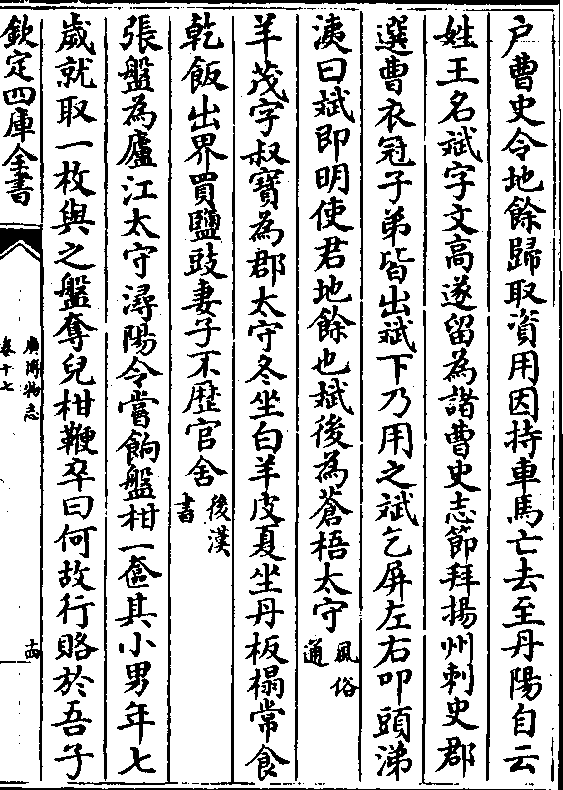 户曹史令地餘歸取資用因持車馬亡去至丹陽自云
姓王名斌字文高遂留為諸曹史志節拜揚州刺史郡
選曹衣冠子弟皆出斌下乃用之斌乞屏左右叩頭涕
洟曰斌即明使君地餘也斌後為蒼梧太守風俗通
羊茂字叔寶為郡太守冬坐白羊皮夏坐丹板榻常食
乾飯出界買鹽豉妻子不歴官舍後漢書
張盤為廬江太守潯陽令嘗餉盤柑一奩其小男年七
歲就取一枚與之盤奪兒柑鞭卒曰何故行賂於吾子
欽定四庫全書
廣博物志
卷十七
十四